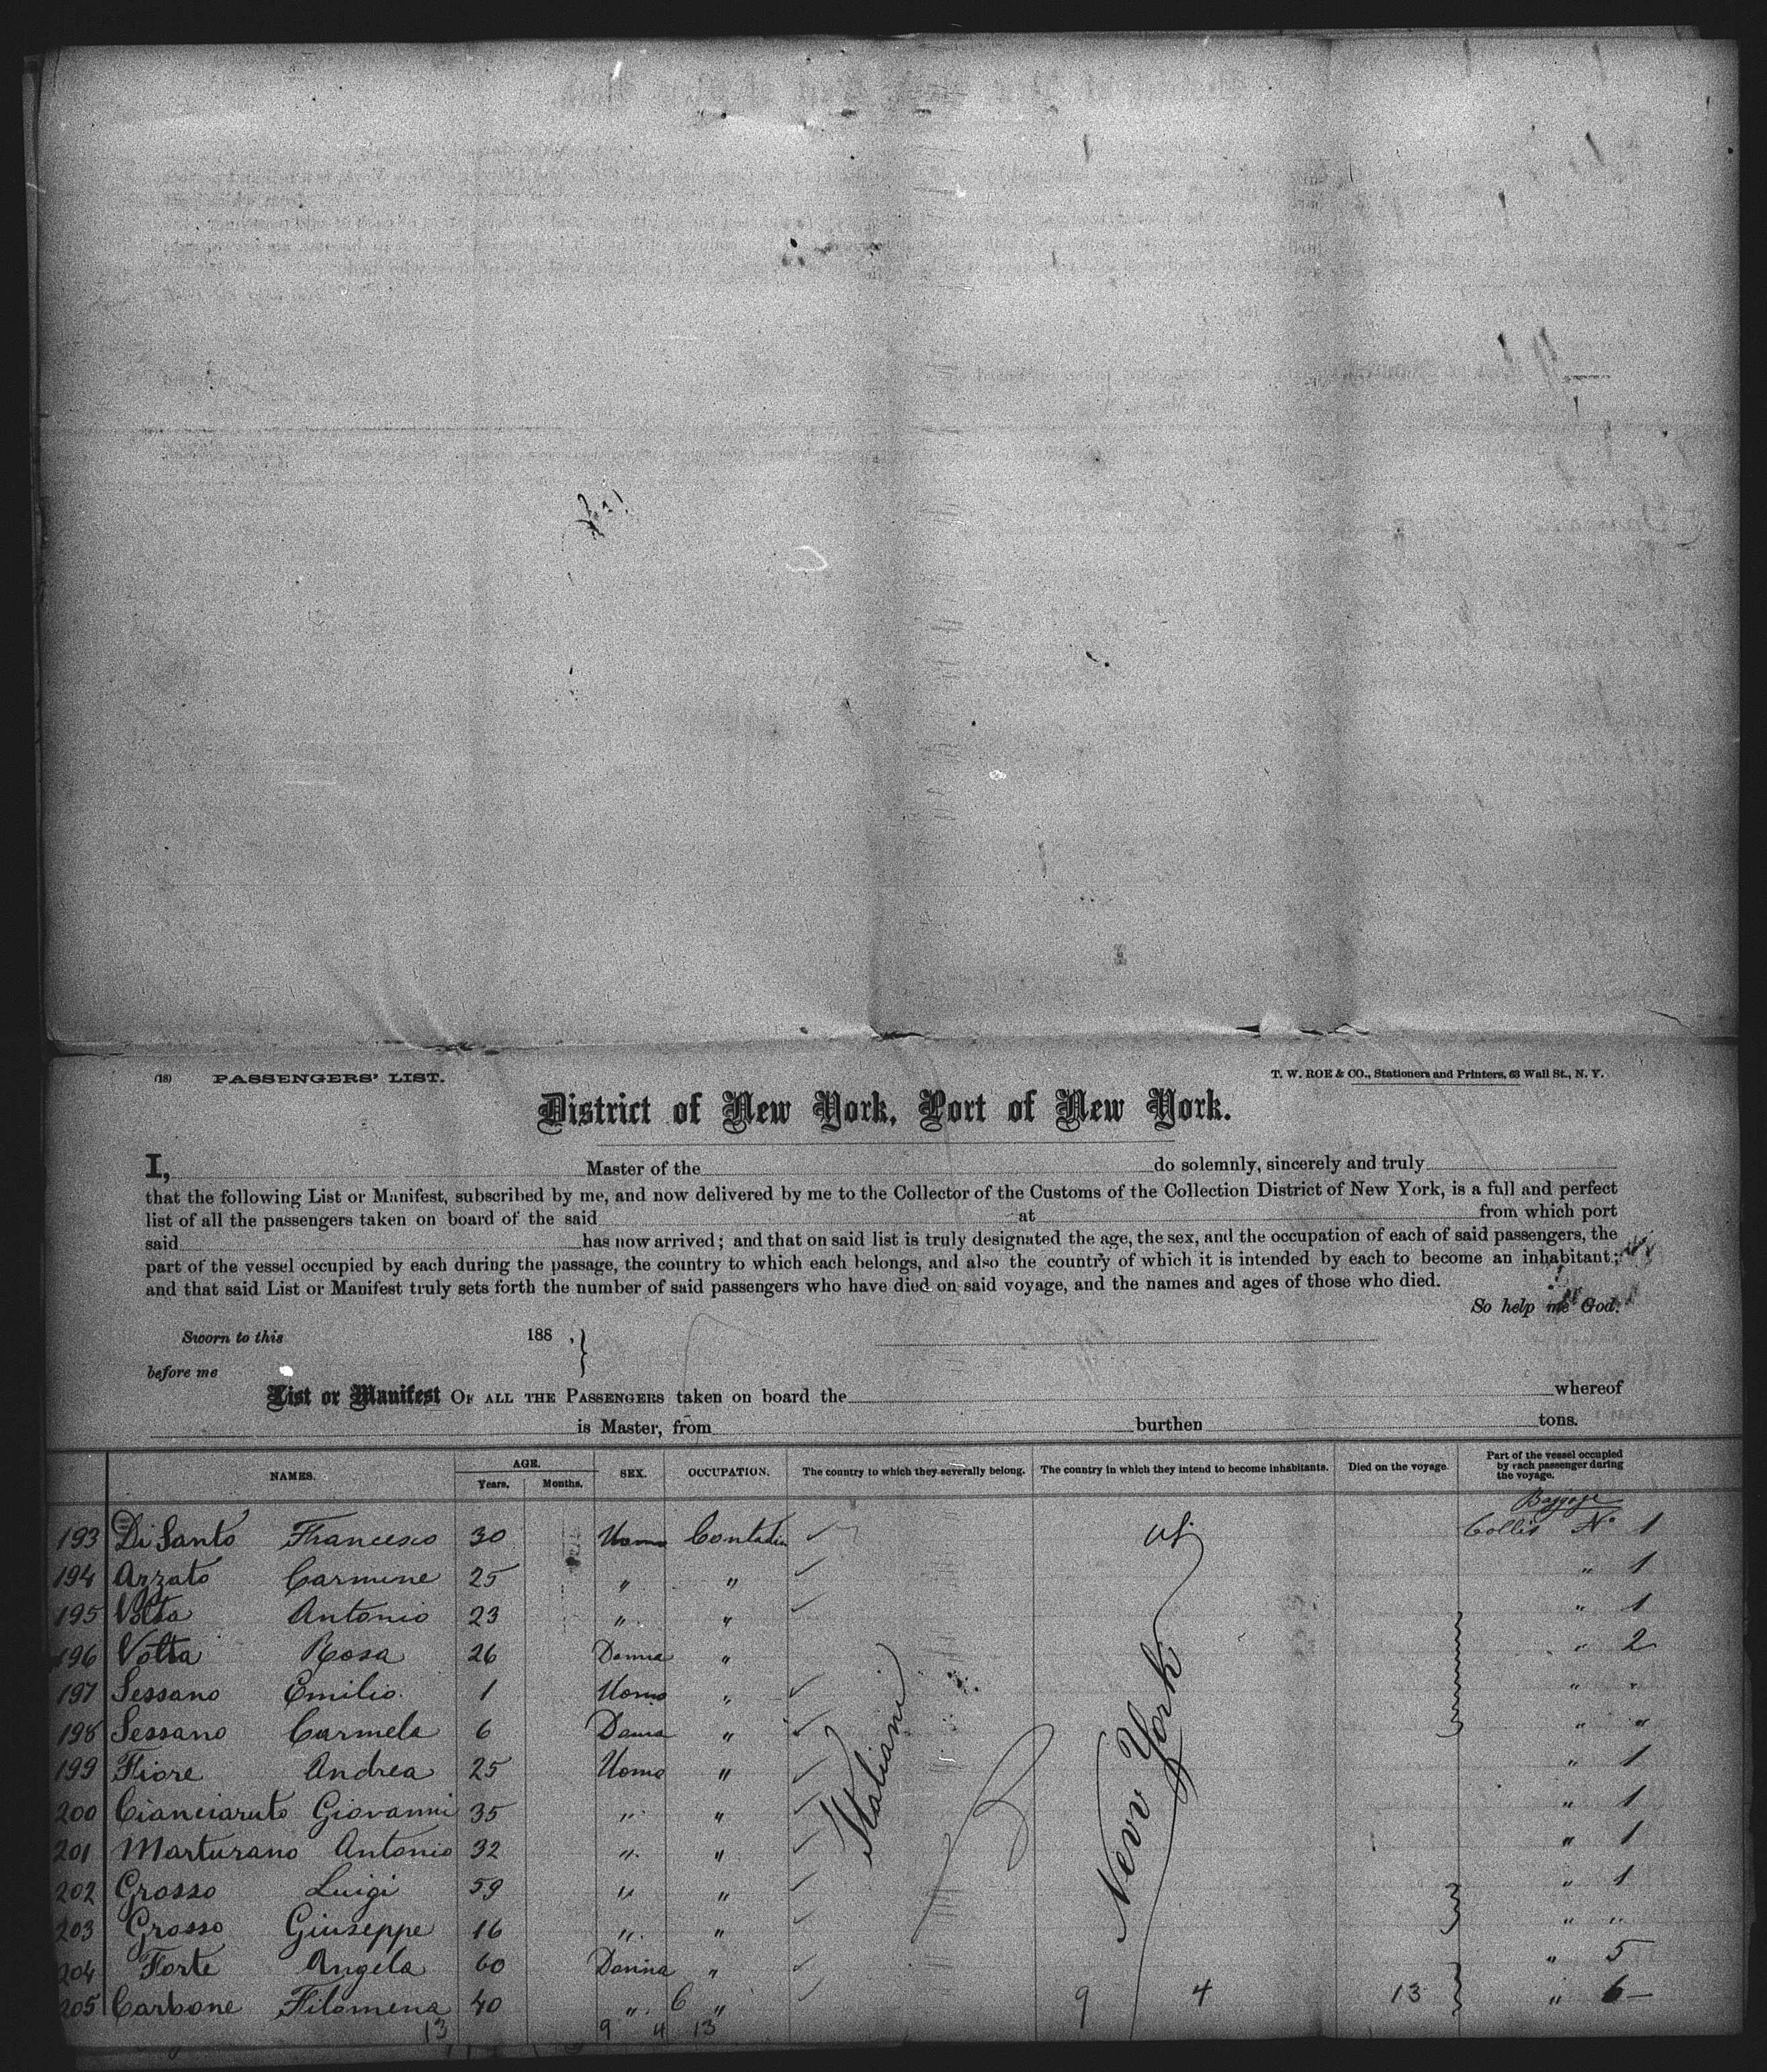 (18) PASSENGERS' LIST. T. W. ROE & CO., Stationers and Printers, 63 Wall St., N. Y.
District of New York, Port of New York.
I, Master of the do solemnly, sincerely and truly
that the following List or Manifest, subscribed by me, and now delivered by me to the Collector of the Customs of the Collection District of New York, is a full and perfect
list of all the passengers taken on board of the said at from which port
said has now arrived; and that on said list is truly designated the age, the sex, and the occupation of each of said passengers, the
part of the vessel occupied by each during the passage, the country to which each belongs, and also the country of which it is intended by each to become an inhabitant;
and that said List or Manifest truly sets forth the number of said passengers who have died on said voyage, and the names and ages of those who died.
So help me God.
Sworn to this 188 ,
before me
List or Manifest OF ALL THE PASSENGERS taken on board the whereof
is Master, from burthen tons.
NAMES. AGE. Years. Months. SEX. OCCUPATION. The country to which they severally belong. The country in which they intend to become inhabitants. Died on the voyage. Part of the vessel occupied by each passenger during the voyage.
Baggage
193 Di Santo Francesco 30 Uomo Contadin Collis No 1
194 Azzato Carmine 25 " " " 1
195 Volta Antonio 23 " " " 1
196 Volta Rosa 26 Donna " " 2
197 Sessano Emilio 1 Uomo " " "
198 Sessano Carmela 6 Donna " " "
199 Fiore Andrea 25 Uomo " " 1
200 Cianciaruto Giovanni 35 " " " 1
201 Marturano Antonio 32 " " " 1
202 Grosso Luigi 59 " " " 1
203 Grosso Giuseppe 16 " " " "
204 Forte Angela 60 Donna " " 5
205 Carbone Filomena 40 " 6 " 9 4 13 " 6
13 9 4 13
Italiani
New York